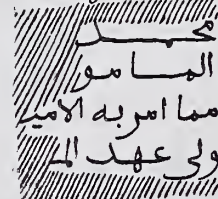 محمد
المامو
مما امر به الامير
ولى عهد الم